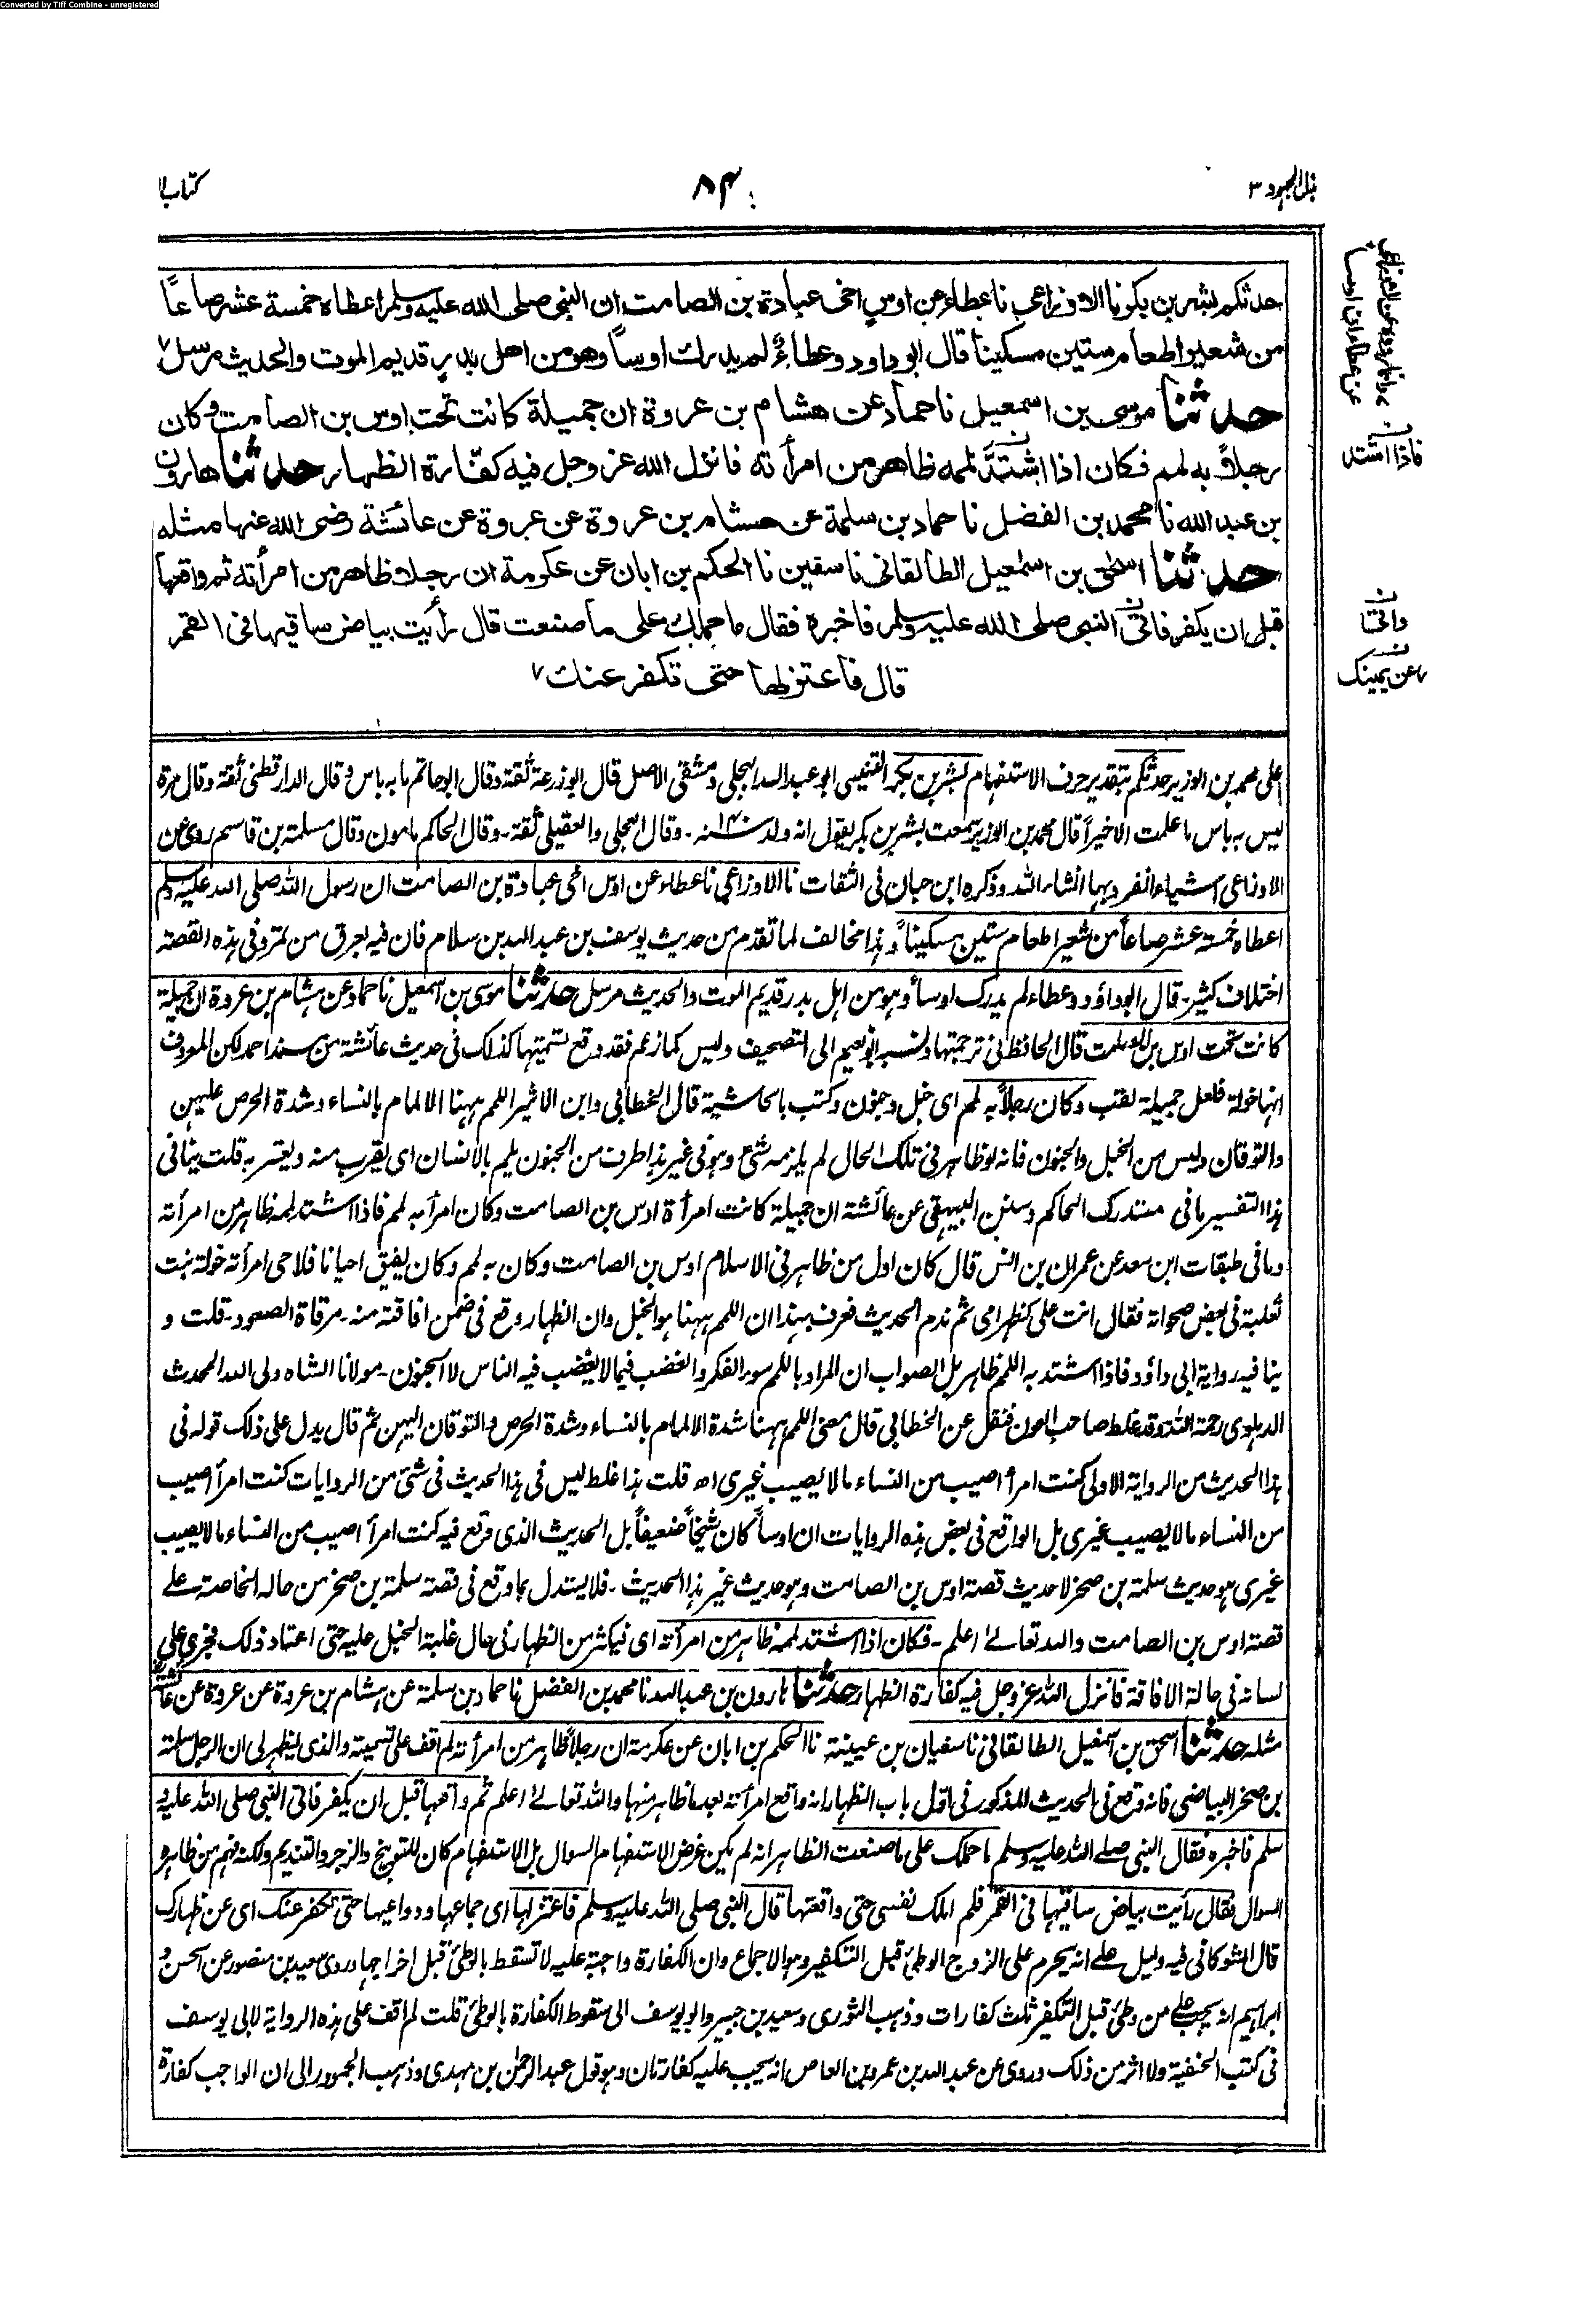 Converted by Tiff Combine - unregistered
بذل المجهود ٣
٨٤
كتاب ا
حدثكم بشر بن بكر نا الاوزاعي نا عطاء عن اوس اخى عبادة بن الصامت ان النبي صلى الله عليه وسلم اعطاه خمسة عشر صاعاً
من شعير اطعام ستين مسكيناً قال ابو داود وعطاءٌ لم يدرك اوساً وهو من اهل بدرٍ قديم الموت والحديث مرسل
حدثنا موسى بن اسمعيل نا حماد عن هشام بن عروة ان جميلة كانت تحت اوس بن الصامت وكان
رجلاً به لمم فكان اذا اشتدّ لممه ظاهر من امرأته فانزل الله عز وجل فيه كفّارة الظهار حدثنا هارون
بن عبد الله نا محمد بن الفضل نا حماد بن سلمة عن هشام بن عروة عن عروة عن عائشة رضى الله عنها مثله
حدثنا اسحق بن اسمعيل الطالقانى نا سفين نا الحكم بن ابان عن عكرمة ان رجلا ظاهر من امرأته ثم واقعها
قبل ان يكفر فاتى النبي صلى الله عليه وسلم فاخبره فقال ما حملك على ما صنعت قال رأيت بياض ساقيها فى القمر
قال فاعتزلها حتى تكفر عنك
فاذا اشتد
واتى
عن يمينك
على محمد بن الوزير حدثكم بتقدير حرف الاستفهام بشر بن بكر التنيسى ابو عبد الله البجلى دمشقى الاصل قال ابو زرعة ثقة وقال ابو حاتم ما به باس وقال الدارقطنى ثقة وقال مرة
ليس به باس ما علمت الا خيراً قال محمد بن الوزير سمعت بشر بن بكر يقول انه ولد سنه ١٢٤ - وقال العجلى والعقيلى ثقة - وقال الحاكم مامون وقال مسلمة بن قاسم روى عن
الاوزاعى اشياء انفرد بها انشاء الله وذكره ابن حبان فى الثقات نا الاوزاعى نا عطاء عن اوس اخى عبادة بن الصامت ان رسول الله صلى الله عليه وسلم
اعطاه خمسة عشر صاعاً من شعير اطعام ستين مسكيناً وهذا مخالف لما تقدم من حديث يوسف بن عبد الله بن سلام فان فيه بعرق من تمر وفى هذه القصة
اختلاف كثير - قال ابو داؤد وعطاء لم يدرك اوساً وهو من اهل بدر قديم الموت والحديث مرسل حدثنا موسى بن اسمعيل نا حماد عن هشام بن عروة ان جميلة
كانت تحت اوس بن الصامت قال الحافظ فى ترجمتها ونسبه ابو نعيم الى التصحيف وليس كما زعم فقد وقع تسميتها كذلك فى حديث عائشة من سند احمد لكن المعروف
انها خولة فلعل جميلة لقب وكان رجلاً به لمم اى خبل وجنون وكتب بالحاشية قال الخطابى وابن الاثير اللمم ههنا الالمام بالنساء وشدة الحرص عليهن
والتوقان وليس من الخبل والجنون فانه لو ظاهر فى تلك الحال لم يلزمه شئ وهو فى غير هذا طرف من الجنون يلم بالانسان اى يقرب منه ويعتريه قلت ينافى
هذا التفسير ما فى مستدرك الحاكم وسنن البيهقى عن عائشة ان جميلة كانت امرأة اوس بن الصامت وكان امرأ به لمم فاذا اشتد لممه ظاهر من امرأته
وما فى طبقات ابن سعد عن عمران بن انس قال كان اول من ظاهر فى الاسلام اوس بن الصامت وكان به لمم وكان يفيق احيانا فلاحى امرأته خولة بنت
ثعلبة فى بعض صحواته فقال انت على كظهر امى ثم ندم الحديث فعرف بهذا ان اللمم ههنا هو الخبل وان الظهار وقع فى ضمن افاقته منه - مرقاة الصعود - قلت و
ينافيه رواية ابى داؤد فاذا اشتد به اللمم ظاهر بل الصواب ان المراد باللمم سوء الفكر والغضب فيما لا يغضب فيه الناس لا الجنون - مولانا الشاه ولى الله المحدث
الدهلوى رحمة الله وقد غلط صاحب العون فنقل عن الخطابى قال معنى اللمم ههنا شدة الالمام بالنساء وشدة الحرص والتوقان اليهن ثم قال يدل على ذلك قوله فى
هذا الحديث من الرواية الاولى كنت امرأ اصيب من النساء ما لا يصيب غيرى اه قلت هذا غلط ليس فى هذا الحديث فى شئ من الروايات كنت امرأ اصيب
من النساء ما لا يصيب غيرى بل الواقع فى بعض هذه الروايات ان اوساً كان شيخاً ضعيفاً بل الحديث الذى وقع فيه كنت امرأ اصيب من النساء ما لا يصيب
غيرى هو حديث سلمة بن صخر لا حديث قصة اوس بن الصامت وهو حديث غير هذا الحديث - فلا يستدل بما وقع فى قصة سلمة بن صخر من حاله الخاصة على
قصة اوس بن الصامت والله تعالىٰ اعلم - فكان اذا اشتد لممه ظاهر من امرأته اى فيكثر من الظهار فى حال غلبة الخبل عليه حتى اعتاد ذلك فجرى على
لسانه فى حالة الافاقة فانزل الله عز وجل فيه كفارة الظهار حدثنا هارون بن عبد الله نا محمد بن الفضل نا حماد بن سلمة عن هشام بن عروة عن عروة عن عائشة
مثله حدثنا اسحق بن اسمعيل الطالقانى نا سفيان بن عيينة نا الحكم بن ابان عن عكرمة ان رجلاً ظاهر من امرأته لم اقف على تسميته والذى يظهر لى ان الرجل سلمة
بن صخر البياضى فانه وقع فى الحديث المذكور فى اول باب الظهار انه واقع امرأته بعد ما ظاهر منها والله تعالىٰ اعلم ثم واقعها قبل ان يكفر فاتى النبى صلى الله عليه و
سلم فاخبره فقال النبى صلے الله عليه وسلم ما حملك على ما صنعت الظاهر انه لم يكن غرض الاستفهام السوال بل الاستفهام كان للتوبيخ والزجر والتنديم ولكنه فهم من ظاهره
السوال فقال رأيت بياض ساقيها فى القمر فلم املك نفسى حتى واقعتها قال النبى صلى الله عليه وسلم فاعتزلها اى جماعها ودواعيها حتى تكفر عنك اى عن ظهارك
قال الشوكانى فيه دليل على انه يحرم على الزوج الوطئ قبل التكفير وهو الاجماع وان الكفارة واجبة عليه لا تسقط بالوطئ قبل اخراجها وروى سعيد بن منصور عن الحسن و
ابراهيم انه يجب على من وطئ قبل التكفير ثلث كفارات وذهب الثورى وسعيد بن جبير وابو يوسف الى سقوط الكفارة بالوطئ قلت لم اقف على هذه الرواية لابى يوسف
فى كتب الحنفية ولا اثر من ذلك وروى عن عبد الله بن عمرو بن العاص انه يجب عليه كفارتان وهو قول عبد الرحمٰن بن مهدى وذهب الجمهور الى ان الواجب كفارة